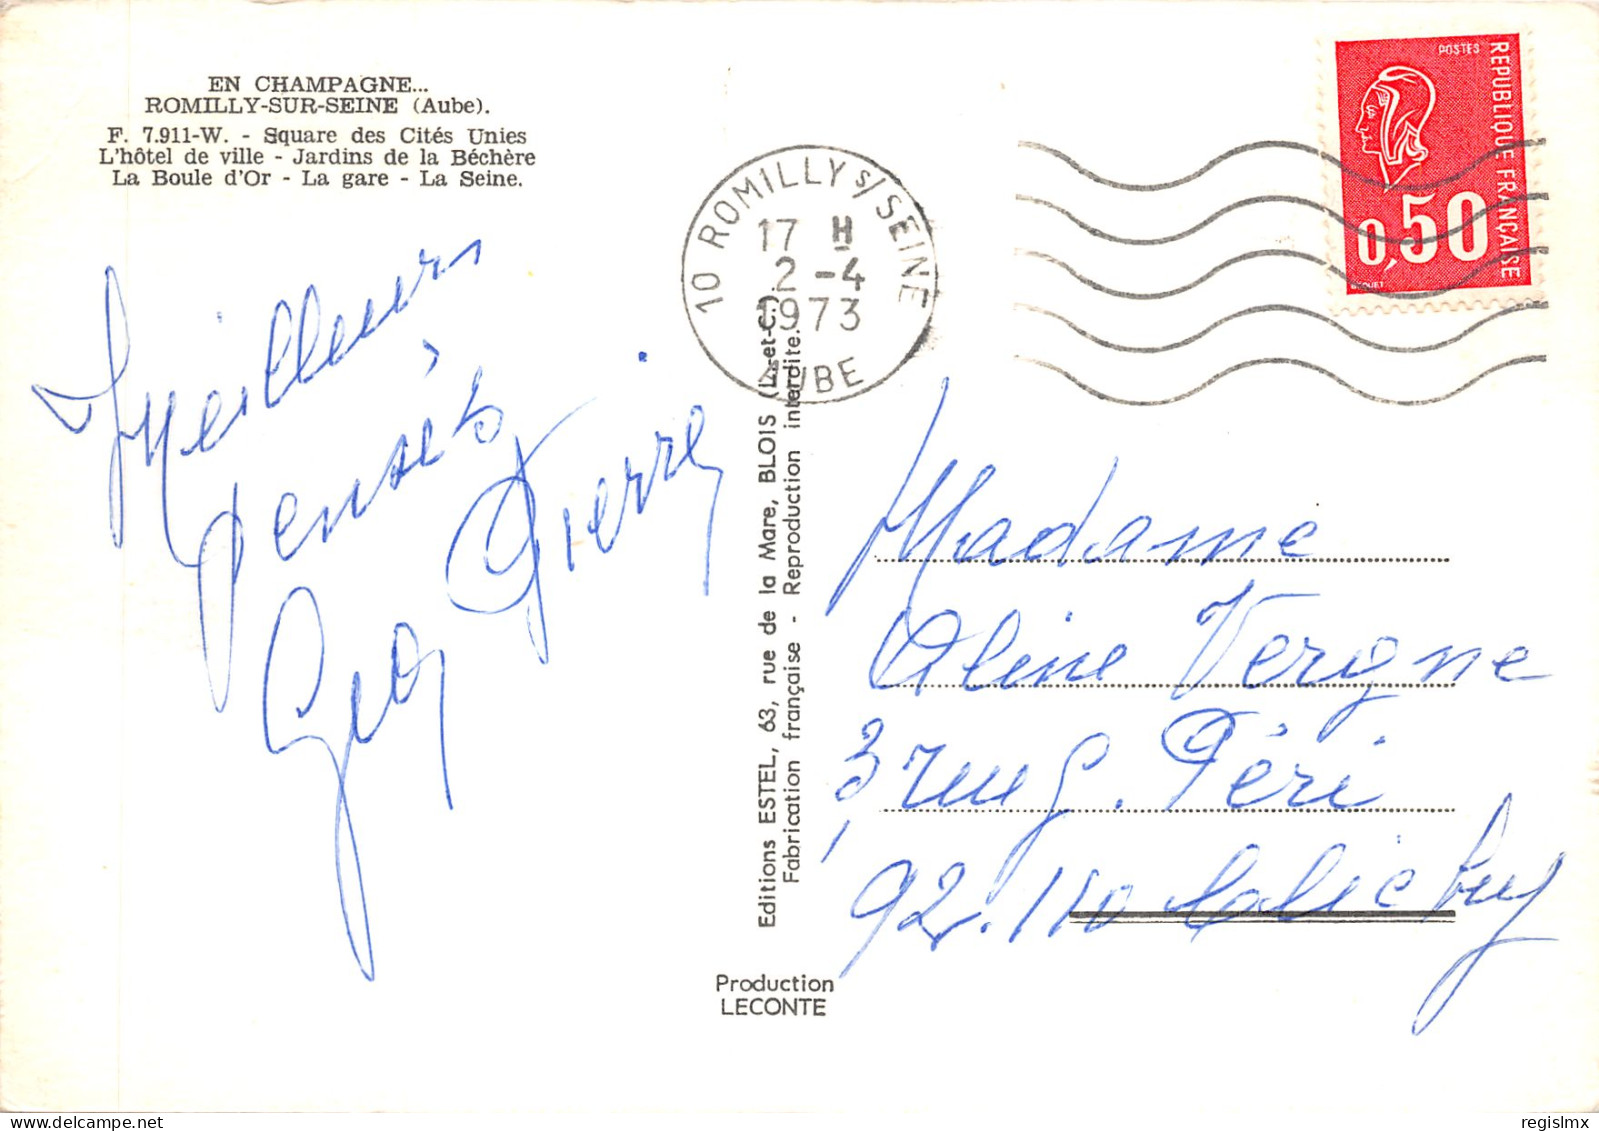 EN CHAMPAGNE...
ROMILLY-SUR-SEINE (Aube).
F. 7.911-W. - Square des Cités Unies
L'hôtel de ville - Jardins de la Béchère
La Boule d'Or - La gare - La Seine.
Meilleurs
pensés
Pierre
10 ROMILLY S/SEINE
17 H
2 -4
1973
AUBE
POSTES
REPUBLIQUE FRANÇAISE
0,50
BEQUET
Editions ESTEL, 63, rue de la Mare, BLOIS (L.-et-C.).
Fabrication française - Reproduction interdite.
Production
LECONTE
Madame
Aline Vergne
3 rue G. Péri
92.110 Clichy
regislmx